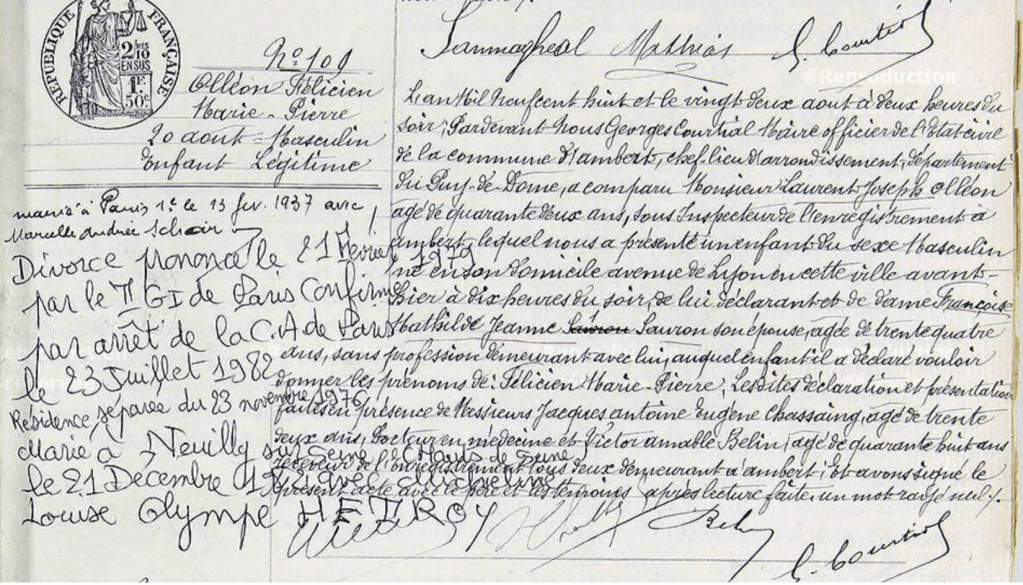 Sanmagheal Mathias G. Courtial
RÉPUBLIQUE FRANÇAISE
2/10
EN SUS
1F.
50c
N° 109
Olléon Félicien
Marie-Pierre
20 aout-Masculin
Enfant Légitime
marié à Paris 1er le 13 fév. 1937 avec
Marcelle Andrée
Divorce prononcé le 21 Février 1979
par le TGI de Paris Confirmé
par arrêt de la C.A de Paris
le 23 Juillet 1982
Résidence séparée du 23 novembre 1976
Marié à Neuilly sur Seine Hauts de Seine
le 21 Décembre avec Micheline
Louise Olympe HETROY
L'an Mil Neuf cent huit et le vingt deux aout à deux heures du
soir, Pardevant Nous Georges Courtial Maire officier de l'Etat civil
de la commune d'Ambert, chef lieu d'arrondissement, département
du Puy-de-Dome, a comparu Monsieur Laurent Joseph Olléon
agé de quarante deux ans, sous Inspecteur de l'enregistrement à
ambert, lequel nous a présenté un enfant du sexe Masculin
né en son domicile avenue de Lyon en cette ville avant-
hier à dix heures du soir, de lui déclarant et de dame Françoise
Mathilde Jeanne Sauron Sauron son épouse, agée de trente quatre
ans, sans profession demeurant avec lui, auquel enfant il a déclaré vouloir
donner les prénoms de: Félicien Marie-Pierre, Lesdites déclaration et présentation
faites en présence de Messieurs Jacques antoine Eugène Chassaing, agé de trente
deux ans, Docteur en médecine et Victor amable Belin, agé de quarante huit ans
receveur de l'enregistrement tous deux demeurant à ambert; Et avons signé le
présent acte avec le père et les témoins, après lecture faite, un mot rayé nul.
Belin
G. Courtial
©Reproduction